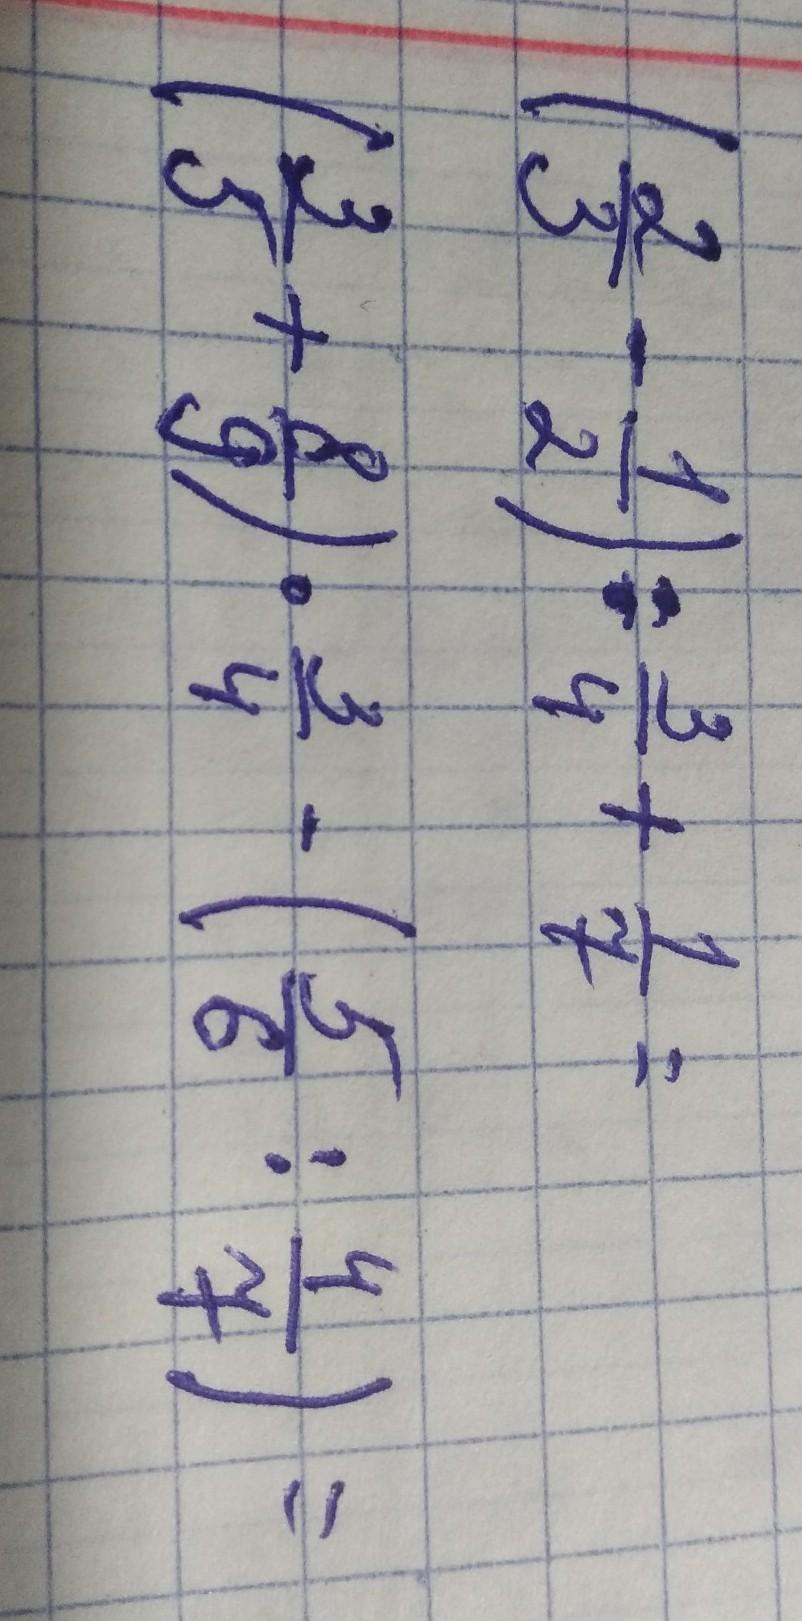 (2/3 - 1/2) : 3/4 + 1/7 =
(3/5 + 8/9) · 3/4 - (5/6 : 4/7) =